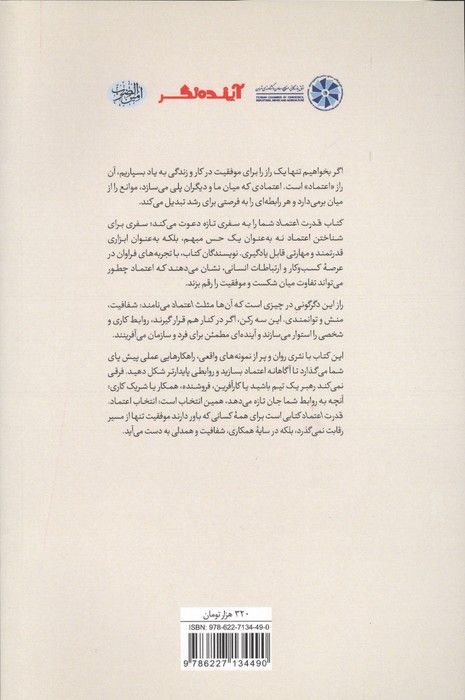 امین‌الضرب
آینده‌نگر
اتاق بازرگانی، صنایع، معادن و کشاورزی تهران
TEHRAN CHAMBER OF COMMERCE,
INDUSTRIES, MINES AND AGRICULTURE
اگر بخواهیم تنها یک راز را برای موفقیت در کار و زندگی به یاد بسپاریم، آن
راز «اعتماد» است. اعتمادی که میان ما و دیگران پلی می‌سازد، موانع را از
میان برمی‌دارد و هر رابطه‌ای را به فرصتی برای رشد تبدیل می‌کند.
کتاب قدرت اعتماد شما را به سفری تازه دعوت می‌کند؛ سفری برای
شناختن اعتماد نه به‌عنوان یک حس مبهم، بلکه به‌عنوان ابزاری
قدرتمند و مهارتی قابل یادگیری. نویسندگان کتاب، با تجربه‌های فراوان در
عرصهٔ کسب‌وکار و ارتباطات انسانی، نشان می‌دهند که اعتماد چطور
می‌تواند تفاوت میان شکست و موفقیت را رقم بزند.
راز این دگرگونی در چیزی است که آن‌ها مثلث اعتماد می‌نامند: شفافیت،
منش و توانمندی. این سه رکن، اگر در کنار هم قرار گیرند، روابط کاری و
شخصی را استوار می‌سازند و آینده‌ای مطمئن برای فرد و سازمان می‌آفرینند.
این کتاب با نثری روان و پر از نمونه‌های واقعی، راهکارهایی عملی پیش پای
شما می‌گذارد تا آگاهانه اعتماد بسازید و روابطی پایدارتر شکل دهید. فرقی
نمی‌کند رهبر یک تیم باشید یا کارآفرین، فروشنده، همکار یا شریک کاری؛
آنچه به روابط شما جان تازه می‌دهد، همین انتخاب است: انتخاب اعتماد.
قدرت اعتماد کتابی است برای همهٔ کسانی که باور دارند موفقیت تنها از مسیر
رقابت نمی‌گذرد، بلکه در سایهٔ همکاری، شفافیت و همدلی به دست می‌آید.
۳۲۰ هزار تومان
ISBN: 978-622-7134-49-0
9 786227 134490